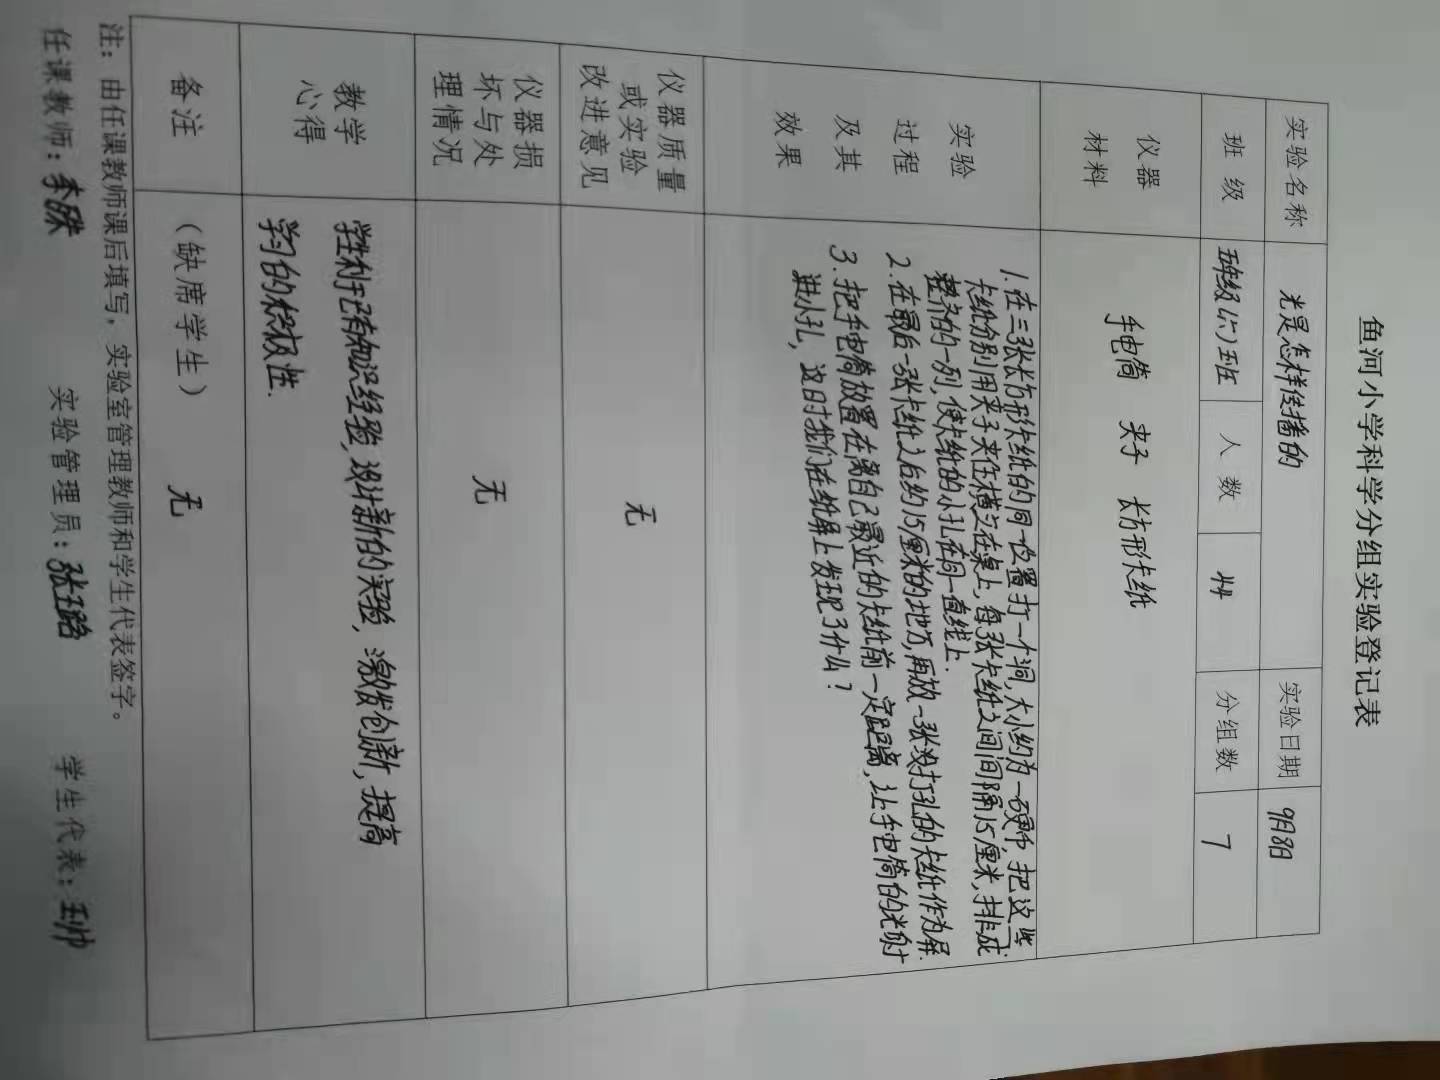 鱼河小学科学分组实验登记表
实验名称 光是怎样传播的 实验日期 9月8日
班级 五年级(六)班 人数 44 分组数 7
仪器
材料
手电筒 夹子 长方形卡纸
实验
过程
及其
效果
1.在三张长方形卡纸的同一位置打一个洞,大小约为一硬币,把这些
卡纸分别用夹子夹住横立在桌上,每张卡纸之间间隔15厘米,排成
整齐的一列,使卡纸的小孔在同一直线上.
2.在最后一张卡纸之后约15厘米的地方,再放一张没打孔的卡纸作为屏.
3.把手电筒放置在离自己最近的卡纸前一定距离,让手电筒的光射
进小孔,这时我们在纸屏上发现了什么?
仪器质量
或实验
改进意见
无
仪器损
坏与处
理情况
无
教学
心得
学生利于已有知识经验,设计新的实验,激发创新,提高
学习的积极性.
备注 (缺席学生) 无
注:由任课教师课后填写,实验室管理教师和学生代表签字。
任课教师:李 实验管理员:张璐 学生代表:王帅